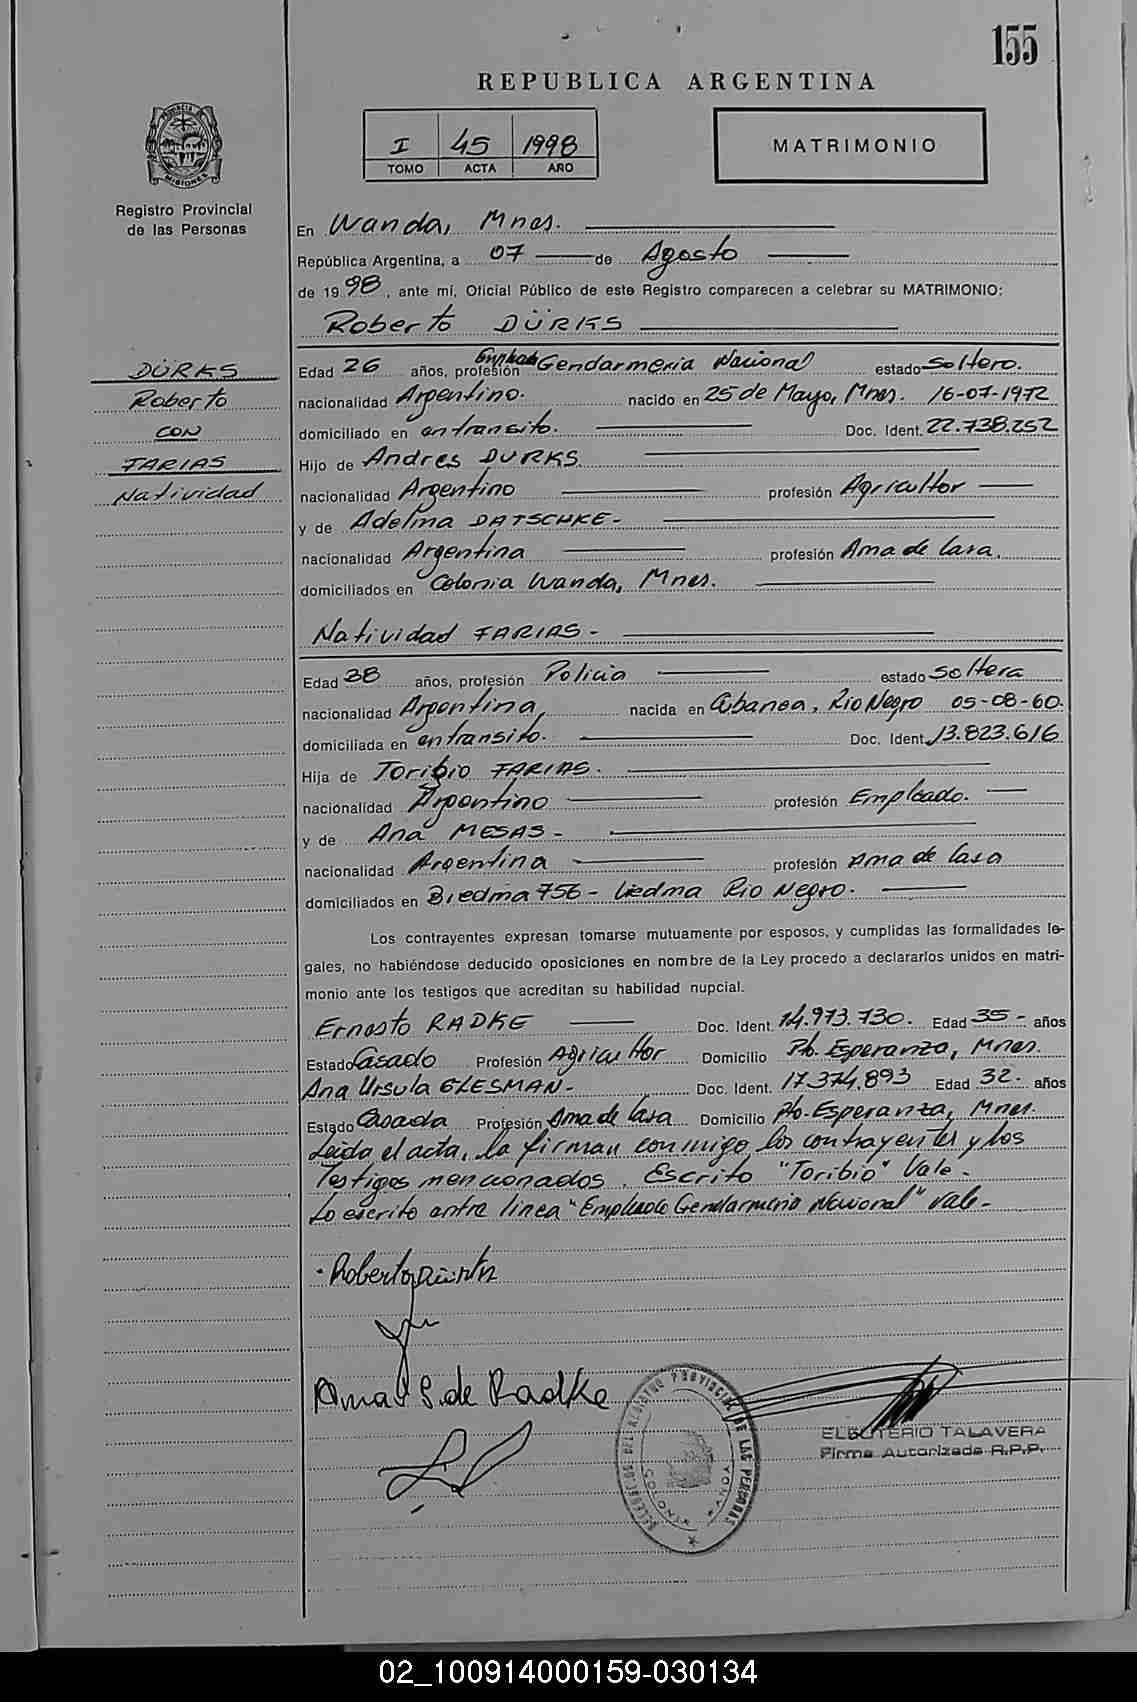 155
REPUBLICA ARGENTINA
I 45 1998
TOMO ACTA AÑO
MATRIMONIO
PROVINCIA DE MISIONES
Registro Provincial
de las Personas
En Wanda, Mnes.
República Argentina, a 07 de Agosto
de 1998, ante mí, Oficial Público de este Registro comparecen a celebrar su MATRIMONIO:
Roberto DÜRKS
DÜRKS
Roberto
CON
FARIAS
Natividad
Edad 26 años, profesión Empleado Gendarmeria Nacional estado Soltero.
nacionalidad Argentino. nacido en 25 de Mayo, Mnes. 16-07-1972
domiciliado en en transito. Doc. Ident. 22.738.252
Hijo de Andres DURKS.
nacionalidad Argentino profesión Agricultor
y de Adelina DATSCHKE-
nacionalidad Argentina profesión Ama de Casa,
domiciliados en Colonia Wanda, Mnes.
Natividad FARIAS-
Edad 38 años, profesión Policia estado Soltera
nacionalidad Argentina, nacida en Cubanea, Rio Negro 05-08-60.
domiciliada en en transito. Doc. Ident. 13.823.616
Hija de Toribio FARIAS.
nacionalidad Argentino profesión Empleado.
y de Ana MESAS-
nacionalidad Argentina profesión Ama de Casa
domiciliados en Biedma 756- Viedma Rio Negro.
Los contrayentes expresan tomarse mutuamente por esposos, y cumplidas las formalidades le-
gales, no habiéndose deducido oposiciones en nombre de la Ley procedo a declararlos unidos en matri-
monio ante los testigos que acreditan su habilidad nupcial.
Ernesto RADKE Doc. Ident. 14.973.730. Edad 35- años
Estado Casado Profesión Agricultor Domicilio Pto. Esperanza, Mnes.
Ana Ursula GLESMAN- Doc. Ident. 17.374.893 Edad 32. años
Estado Casada Profesión Ama de Casa Domicilio Pto. Esperanza, Mnes.
Leida el acta, la firman conmigo los contrayentes y los
Testigos mencionados. Escrito "Toribio" Vale-
Lo escrito entre linea "Empleado Gendarmeria Nacional" vale-
Roberto
Ana de Radke
DELEGACION DEL REGISTRO PROVINCIAL DE LAS PERSONAS
ELEUTERIO TALAVERA
Firma Autorizada R.P.P.
02_100914000159-030134